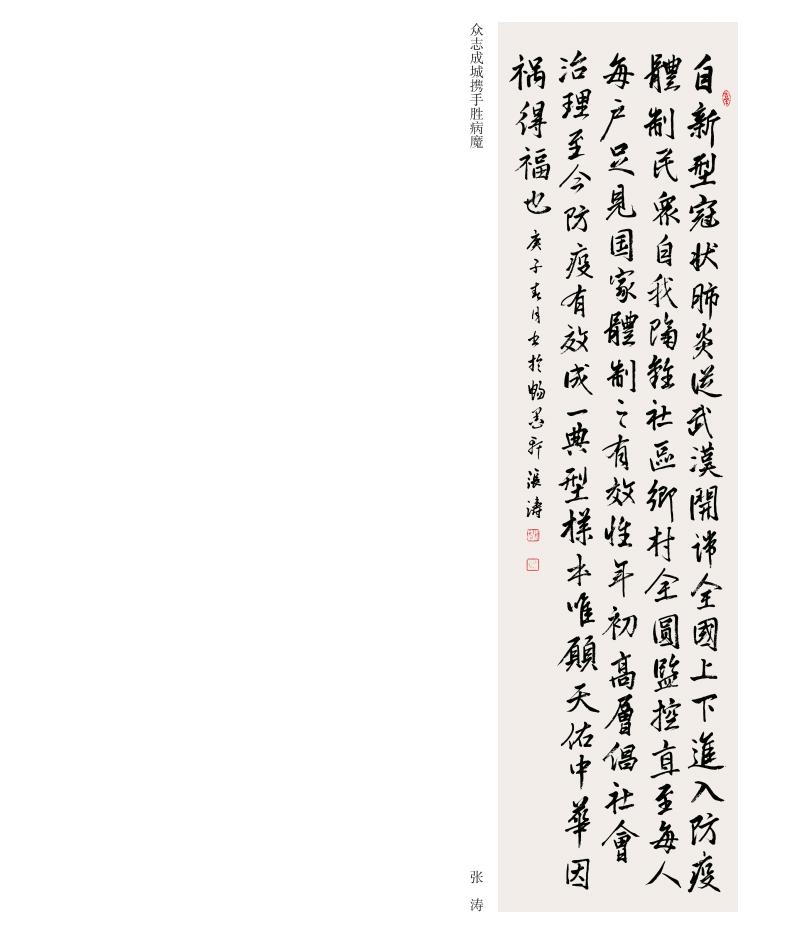 自新型冠状肺炎从武漢開端全國上下進入防疫
體制民衆自我隔離社區鄉村全圓監控直至每人
每户足見国家體制之有效性年初高層倡社會
治理至今防疫有效成一典型樣本唯願天佑中華因
祸得福也
庚子春月书於畅墨轩張濤
众志成城携手胜病魔
张涛